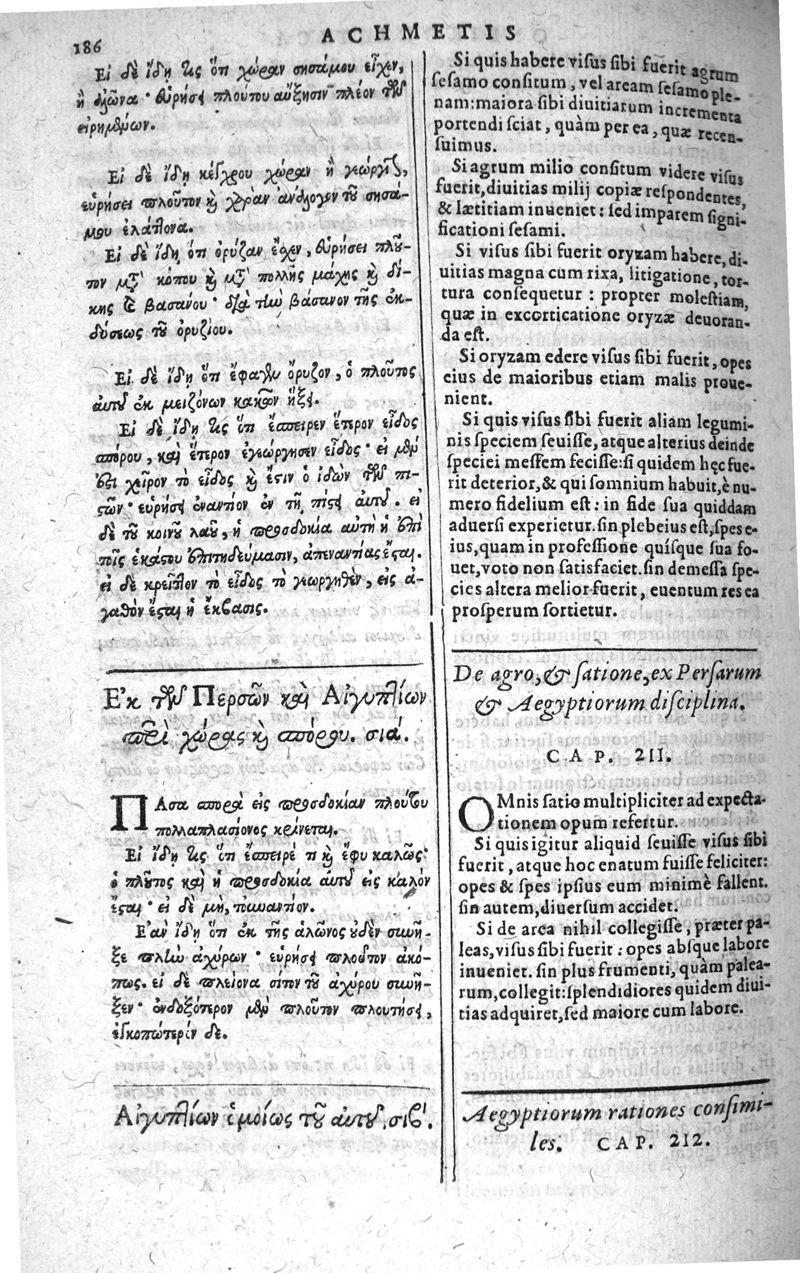 186
ACHMETIS
Εἰ δὲ ἴδῃ τις ὅτι χώραν σησάμου εἶχεν,
ἢ ἁλῶνα· εὑρήσει πλούτου αὔξησιν πλέον τῶν
εἰρημένων.
Εἰ δὲ ἴδῃ κέγχρου χώραν ἢ γεωργεῖ,
εὑρήσει πλοῦτον καὶ χαρὰν ἀνάλογον τοῦ σησά-
μου ἐλάττονα.
Εἰ δὲ ἴδῃ ὅτι ὀρύζαν ἔχεν, εὑρήσει πλοῦ-
τον μετὰ κόπου καὶ μετὰ πολλῆς μάχης καὶ δί-
κης καὶ βασάνου· διὰ τὴν βάσανον τῆς ἐκ-
δύσεως τοῦ ὀρυζίου.
Εἰ δὲ ἴδῃ ὅτι ἔφαγεν ὄρυζον, ὁ πλοῦτος
αὐτοῦ ἐκ μειζόνων κακῶν ἥξει.
Εἰ δὲ ἴδῃ τις ὅτι ἔσπειρεν ἕτερον εἶδος
σπόρου, καὶ ἕτερον ἐγεώργησεν εἶδος· εἰ μὲν
ἐστι χεῖρον τὸ εἶδος καὶ ἔστιν ὁ ἰδὼν τῶν πι-
στῶν· εὑρήσει ἐναντίον ἐν τῇ πίστει αὐτοῦ. εἰ
δὲ τοῦ κοινοῦ λαοῦ, ἡ προσδοκία αὐτῇ ἡ ἐπὶ
τοῖς ἑκάστου ἐπιτηδεύμασιν, ἀπεναντίας ἔσται.
εἰ δὲ κρεῖττον τὸ εἶδος τὸ γεωργηθὲν, εἰς ἀ-
γαθὸν ἔσται ἡ ἔκβασις.
Ἐκ τῶν Περσῶν καὶ Αἰγυπτίων
περὶ χώρας καὶ σπόρου. σιά.
ΠΑσα σπορὰ εἰς προσδοκίαν πλούτου
πολλαπλασίονος κρίνεται.
Εἰ δὲ ἴδῃ τις ὅτι ἔσπειρέ τι καὶ ἔφυ καλῶς·
ὁ πλοῦτος καὶ ἡ προσδοκία αὐτοῦ εἰς καλὸν
ἔσται· εἰ δὲ μὴ, τοὐναντίον.
Ἐὰν ἴδῃ ὅτι ἐκ τῆς ἅλωνος οὐδὲν συνῆ-
ξε πλὴν ἀχύρων· εὑρήσει πλοῦτον ἀκό-
πως. εἰ δὲ πλείονα σῖτον τοῦ ἀχύρου συνῆ-
ξεν· ἐνδοξότερον μὲν πλοῦτον πλουτήσει,
ἐγκοπώτερον δέ.
Αἰγυπτίων ὁμοίως τοῦ αὐτοῦ. σιβ'.
Si quis habere visus sibi fuerit agrum
sesamo consitum, vel aream sesamo ple-
nam: maiora sibi diuitiarum incrementa
portendi sciat, quàm per ea, quæ recen-
suimus.
Si agrum milio consitum videre visus
fuerit, diuitias milij copiæ respondentes,
& lætitiam inueniet: sed imparem signi-
ficationi sesami.
Si visus sibi fuerit oryzam habere, di-
uitias magna cum rixa, litigatione, tor-
tura consequetur: propter molestiam,
quæ in excorticatione oryzæ deuoran-
da est.
Si oryzam edere visus sibi fuerit, opes
eius de maioribus etiam malis proue-
nient.
Si quis visus sibi fuerit aliam legumi-
nis speciem seuisse, atque alterius deinde
speciei messem fecisse: si quidem hęc fue-
rit deterior, & qui somnium habuit, è nu-
mero fidelium est: in fide sua quiddam
aduersi experietur. sin plebeius est, spes e-
ius, quam in professione quísque sua fo-
uet, voto non satisfaciet. sin demessa spe-
cies altera melior fuerit, euentum res ea
prosperum sortietur.
De agro, & satione, ex Persarum
& Aegyptiorum disciplina.
CAP. 211.
OMnis satio multipliciter ad expecta-
tionem opum refertur.
Si quis igitur aliquid seuisse visus sibi
fuerit, atque hoc enatum fuisse feliciter:
opes & spes ipsius eum minimè fallent.
sin autem, diuersum accidet.
Si de area nihil collegisse, præter pa-
leas, visus sibi fuerit: opes absque labore
inueniet. sin plus frumenti, quàm palea-
rum, collegit: splendidiores quidem diui-
tias adquiret, sed maiore cum labore.
Aegyptiorum rationes consimi-
les. CAP. 212.